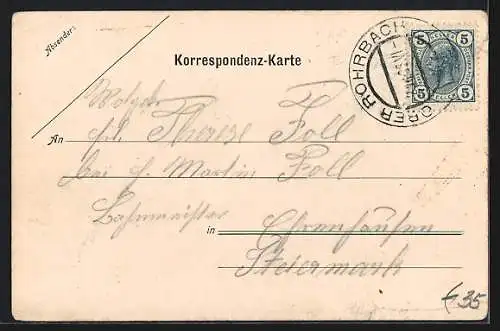 Absender:
Korrespondenz-Karte
OBER ROHRBACH
5 5
5 5
Wolgeb.
An Frl. Therese Foll
bei H. Martin Foll
Bahnmeister
in Ehrenhausen
Steiermark
35